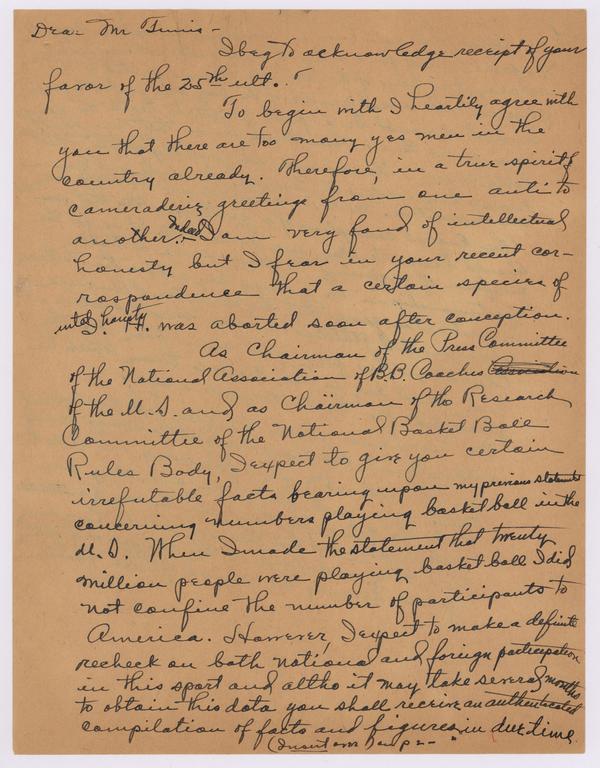 Dear Mr Tunis -
I beg to acknowledge receipt of your
favor of the 25th ult.
To begin with I heartily agree with
you that there are too many yes men in the
country already. Therefore, in a true spirit of
cameraderie greetings from one anti to
another. Indeed I am very fond of intellectual
honesty but I fear in your recent cor-
respondence that a certain species of
intel. honesty was aborted soon after conception.
As Chairman of the Press Committee
of the National Association of B.B. Coaches Association
of the U.S. and as Chairman of the Research
Committee of the National Basket Ball
Rules Body, I expect to give you certain
irrefutable facts bearing upon my previous statements
concerning numbers playing basket ball in the
U.S. When I made the statement that twenty
million people were playing basket ball I did
not confine the number of participants to
America. However, I expect to make a definite
recheck on both national and foreign participation
in this sport and altho it may take several months
to obtain this data you shall receive an authenticated
compilation of facts and figures in due time.
(Insert on